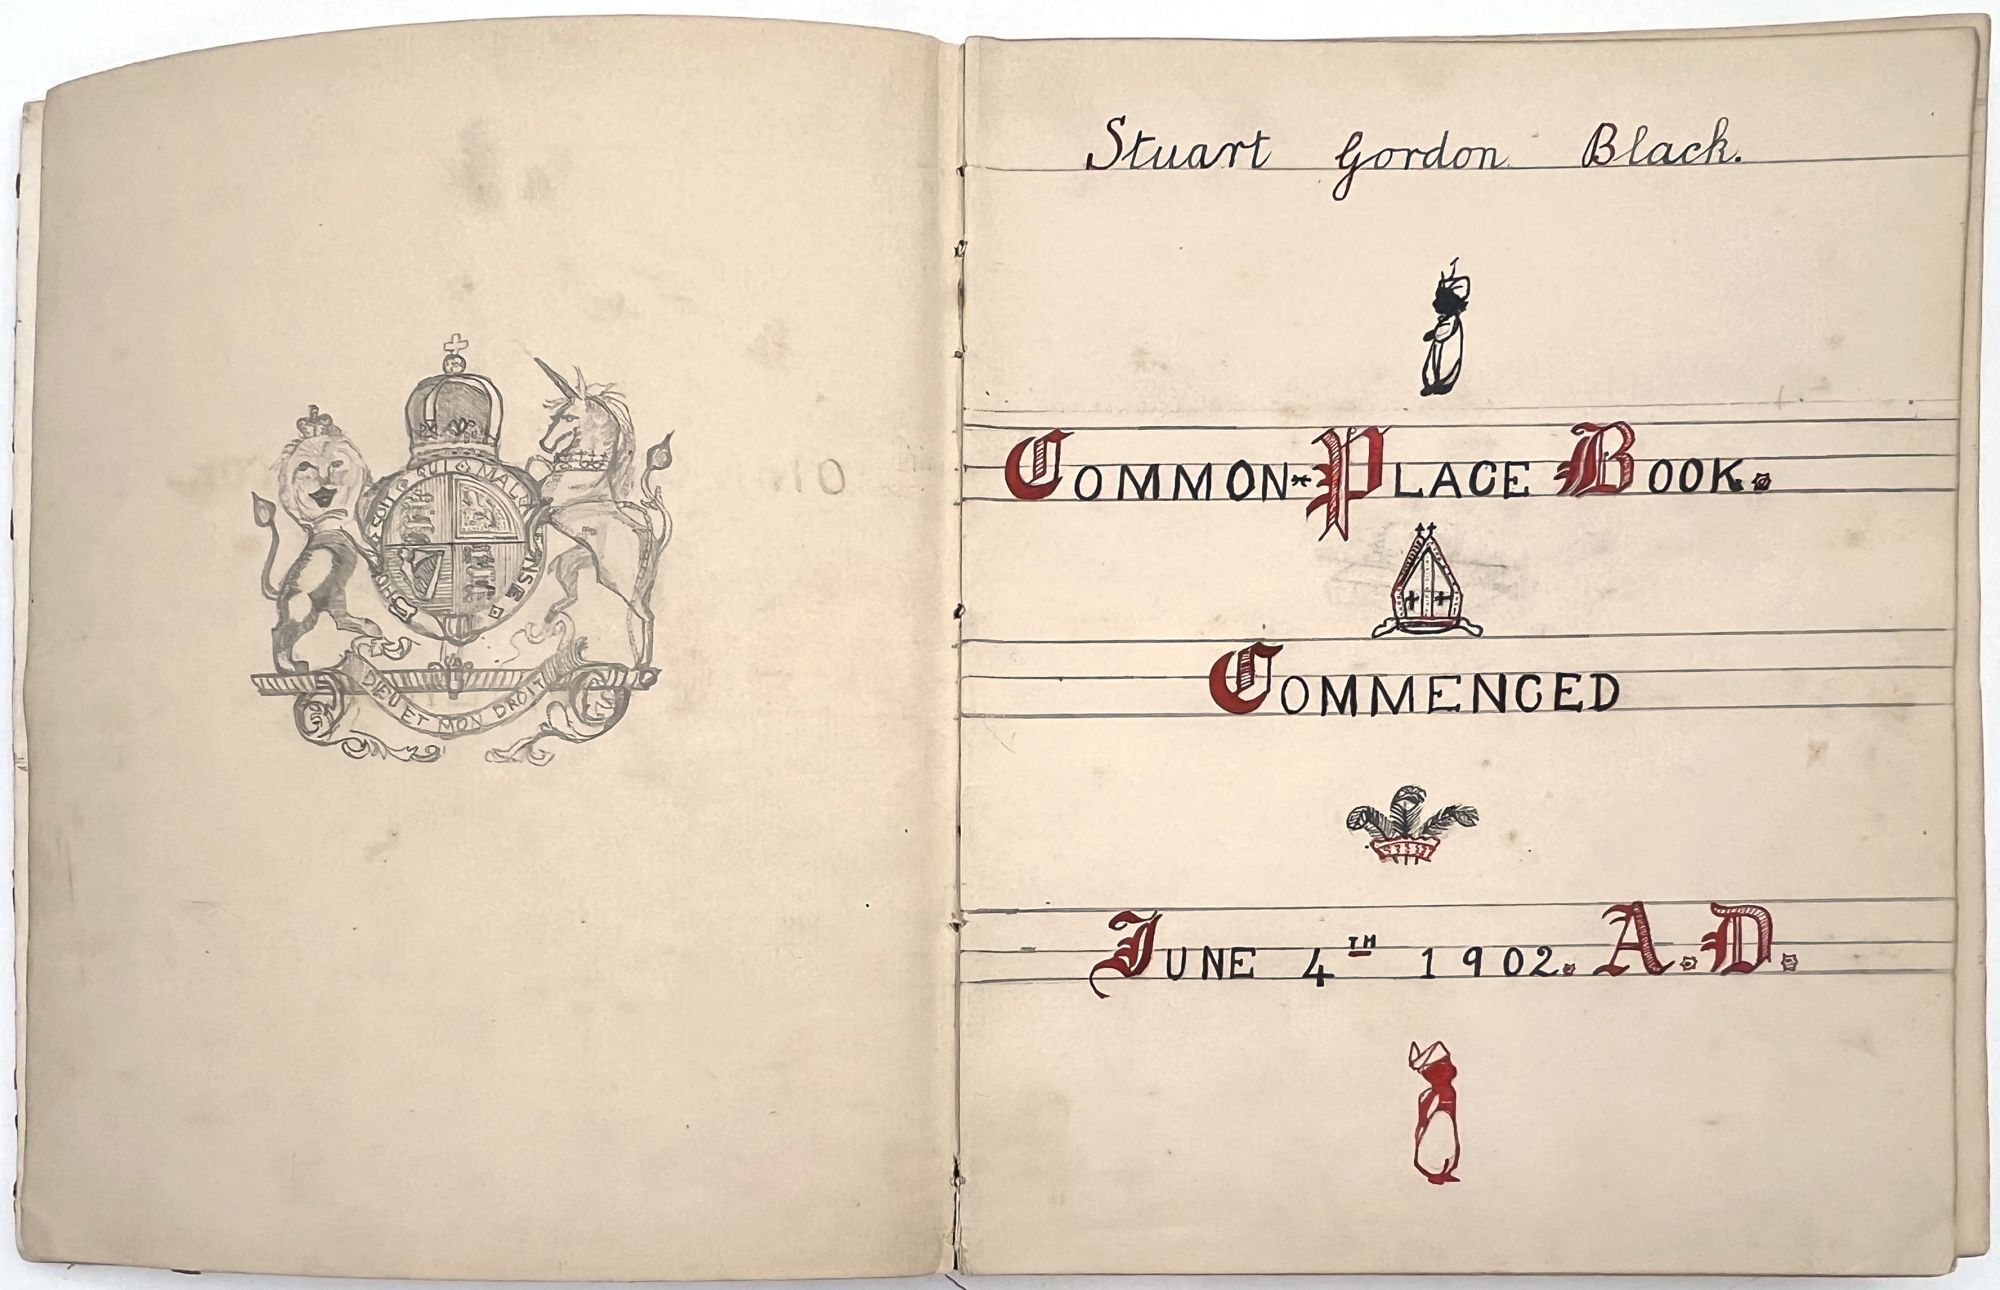 HONI SOIT QUI MAL Y PENSE
DIEU ET MON DROIT
Stuart Gordon Black.
COMMON-PLACE BOOK.
COMMENCED
JUNE 4TH 1902. A.D.